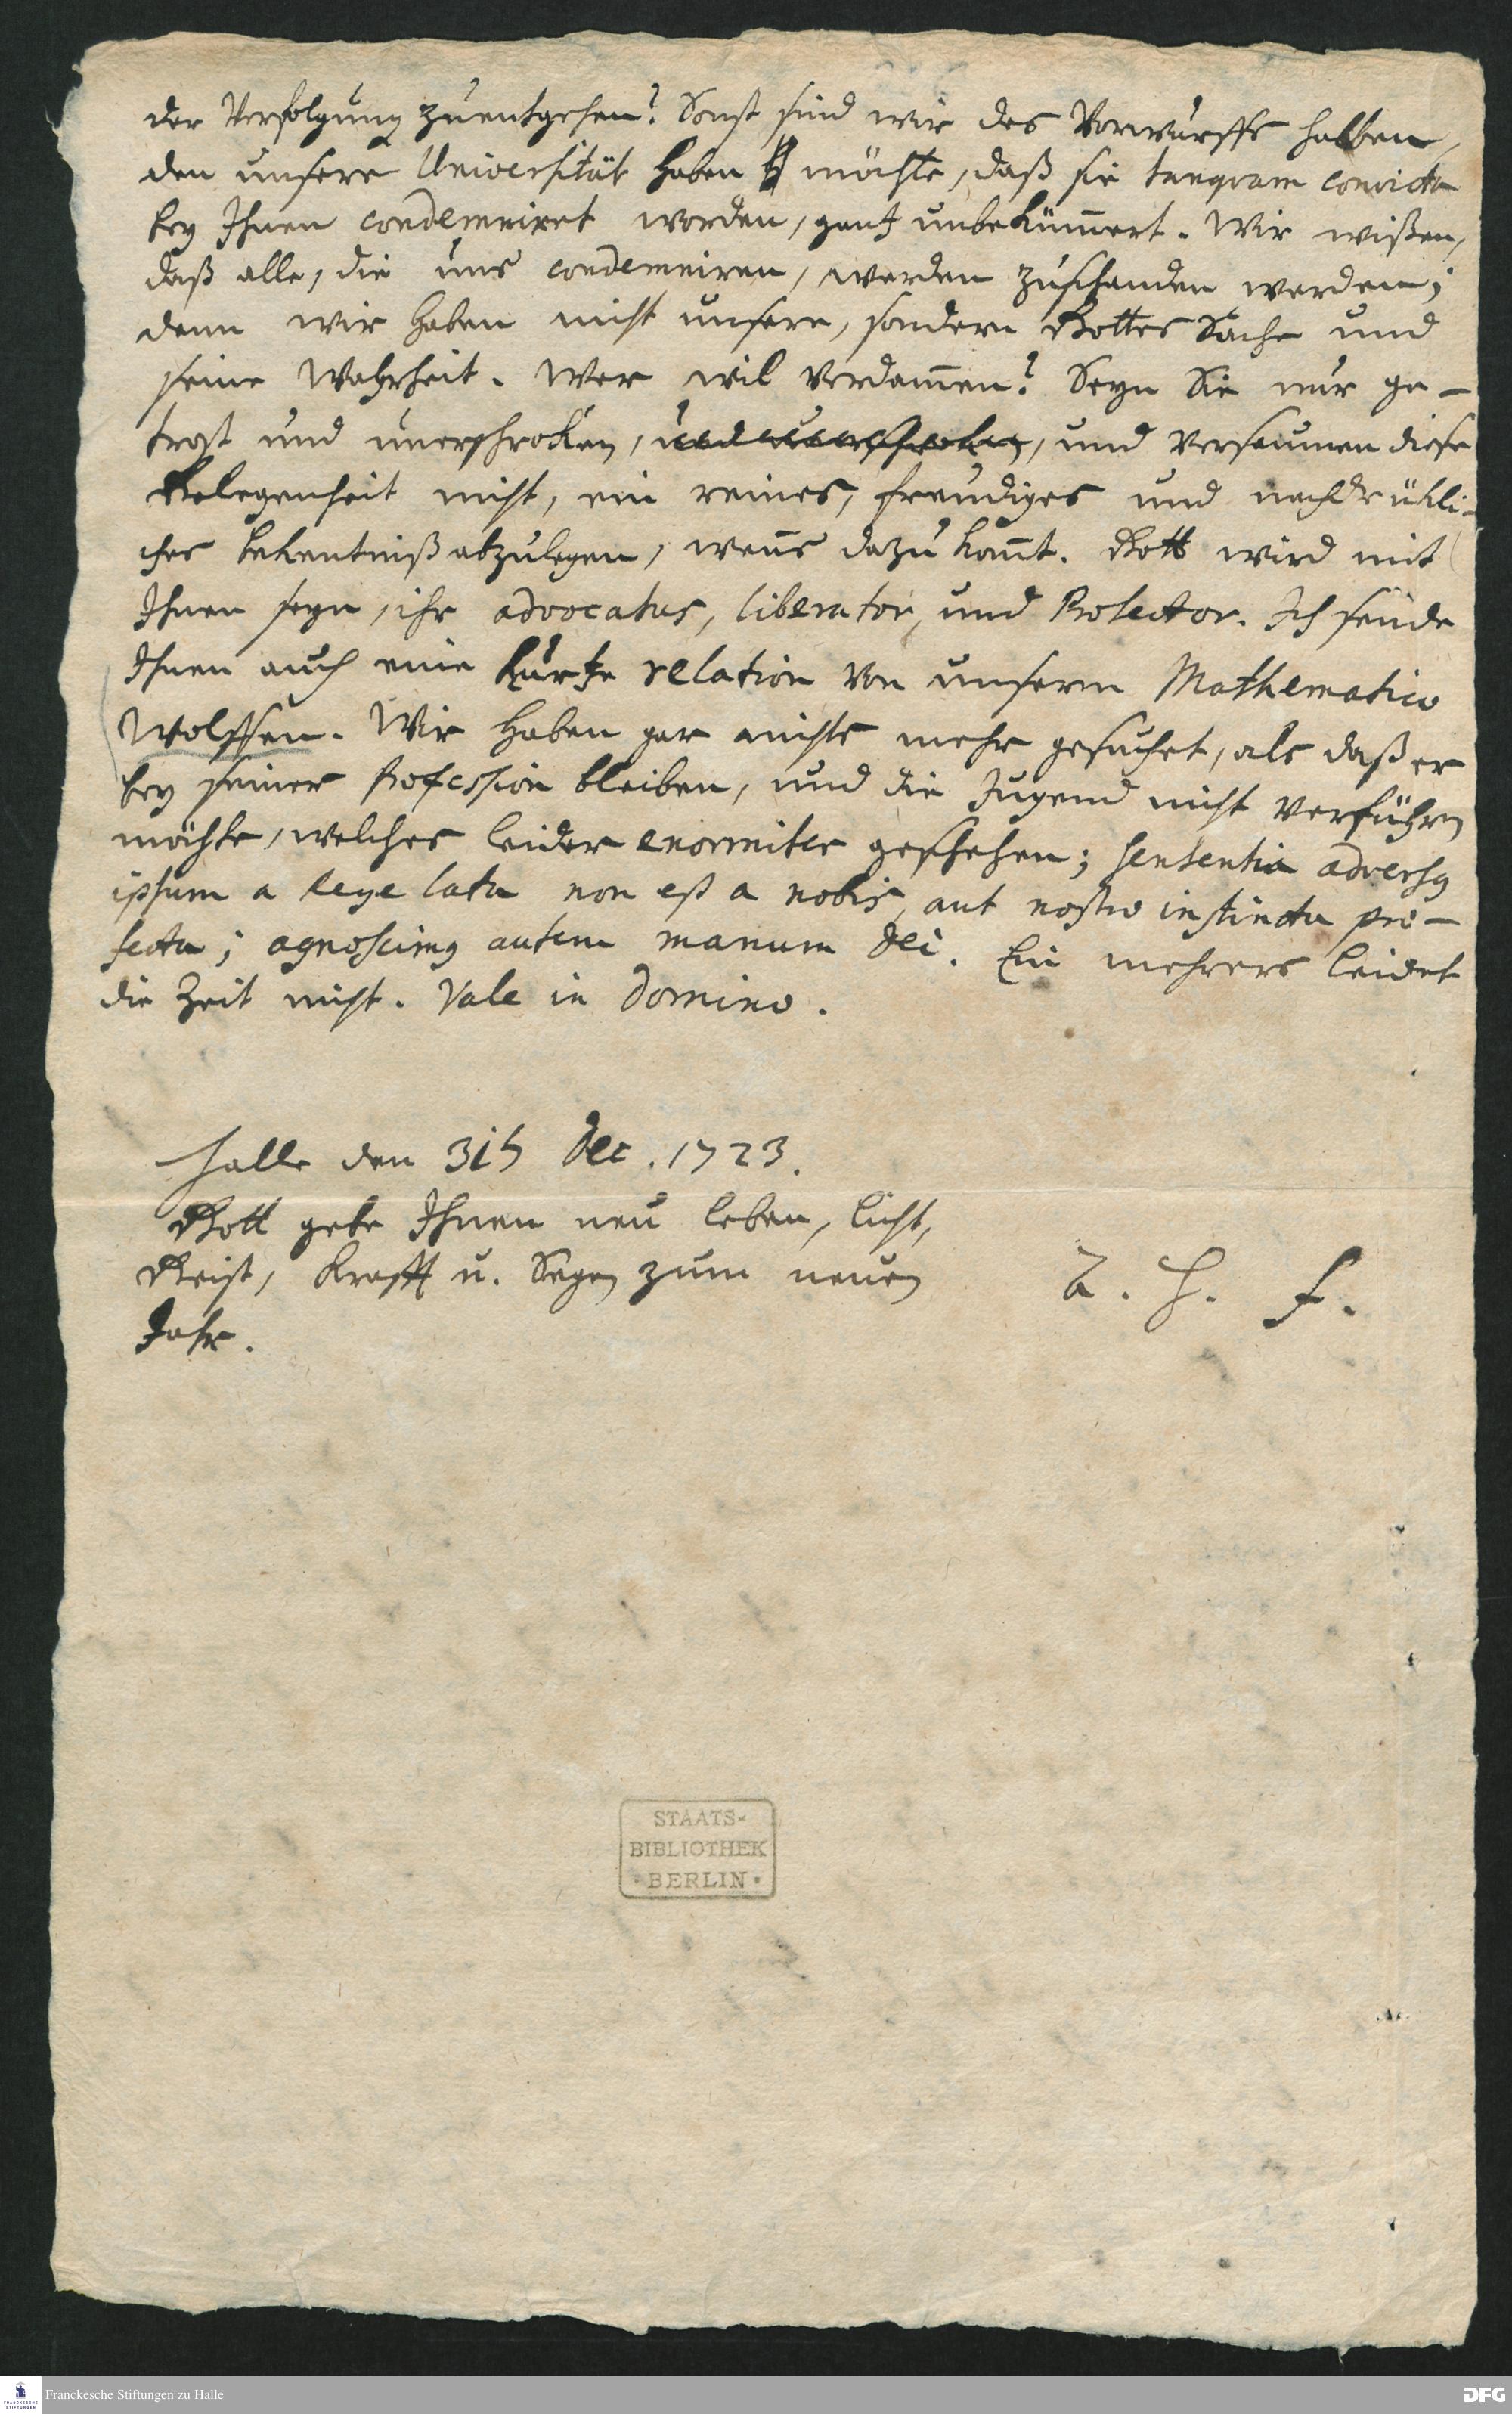 der Verfolgung zuentgehen? Sonst sind wir des Vorwurffs halben,
den unsere Universität haben möchte, daß sie tanquam convicta
bey Ihnen condemniret worden, gantz unbekümmert. Wir wißen,
daß alle, die uns condemniren, werden zuschanden werden;
denn wir haben nicht unsere, sondern Gottes Sache und
seine Wahrheit. Wer wil verdammen? Seyn Sie nur ge-
trost und unerschroken, und unerschroken, und versaumen diese
Gelegenheit nicht, ein reines, freudiges und nachdrükli-
ches bekentniß abzulegen, wenns dazu komt. Gott wird mit
Ihnen seyn, ihr advocatus, liberator, und Protector. Ich sende
Ihnen auch eine kurtze relation von unserm Mathematico
Wolffen. Wir haben gar nichts mehr gesuchet, als daß er
bey seiner Profession bleiben, und die Jugend nicht verführen
möchte, welches leider enormiter geschehen; sententia adversus
ipsum a Rege lata non est a nobis, aut nostro instinctu pro-
fecta; agnoscimus autem manum Dei. Ein mehrers leidet
die Zeit nicht. Vale in Domino.
Halle den 31 Dec. 1723.
Gott gebe Ihnen neu leben, licht,
Geist, Krafft u. Segen zum neuen
Jahr.
A. H. F.
STAATS-
BIBLIOTHEK
• BERLIN •
Franckesche Stiftungen zu Halle
FRANCKESCHE
STIFTUNGEN
DFG